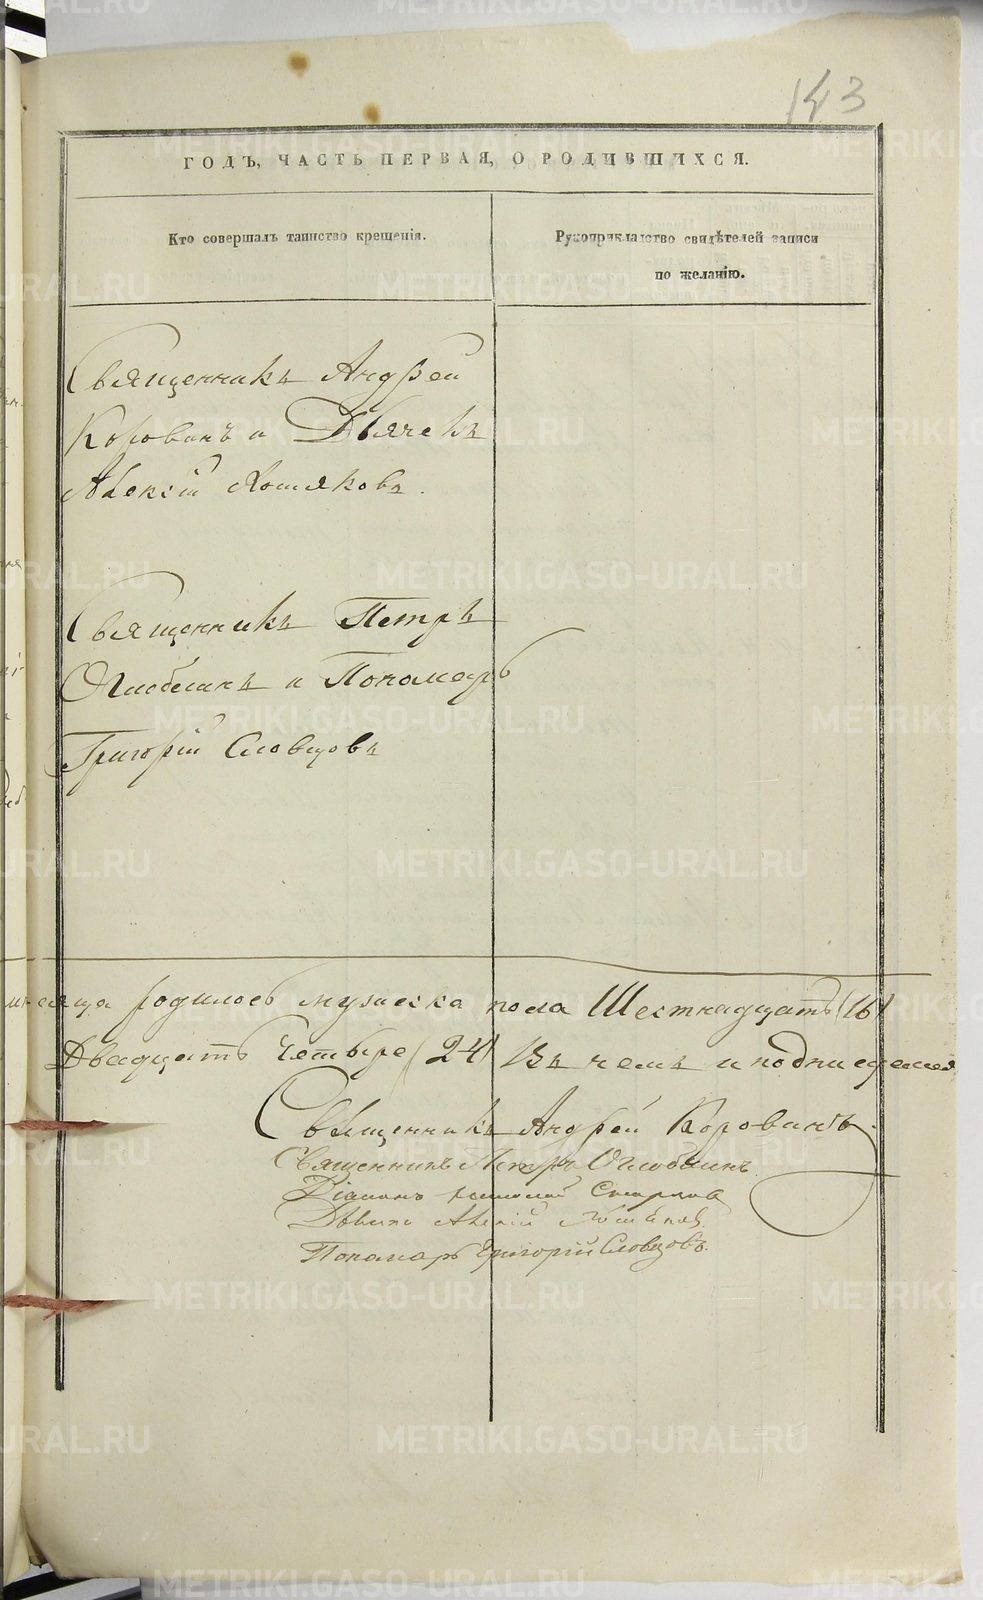 143
ГОДЪ, ЧАСТЬ ПЕРВАЯ, О РОДИВШИХСЯ.
Кто совершалъ таинство крещенія.
Рукоприкладство свидѣтелей записи
по желанію.
Священникъ Андрей
Корованъ и Дьячекъ
Алексій Хомяковъ.
Священникъ Петръ
Оглоблинъ и Пономарь
Григорій Словцовъ
мѣсяца родилось мужеска пола Шестнадцать (16)
Двадцать Четыре (24) Въ чемъ и подписуемся
Священникъ Андрей Корованъ.
Священникъ Петръ Оглоблинъ
Діаконъ
Алексій
Пономарь Григорій Словцовъ.
METRIKI.GASO-URAL.RU